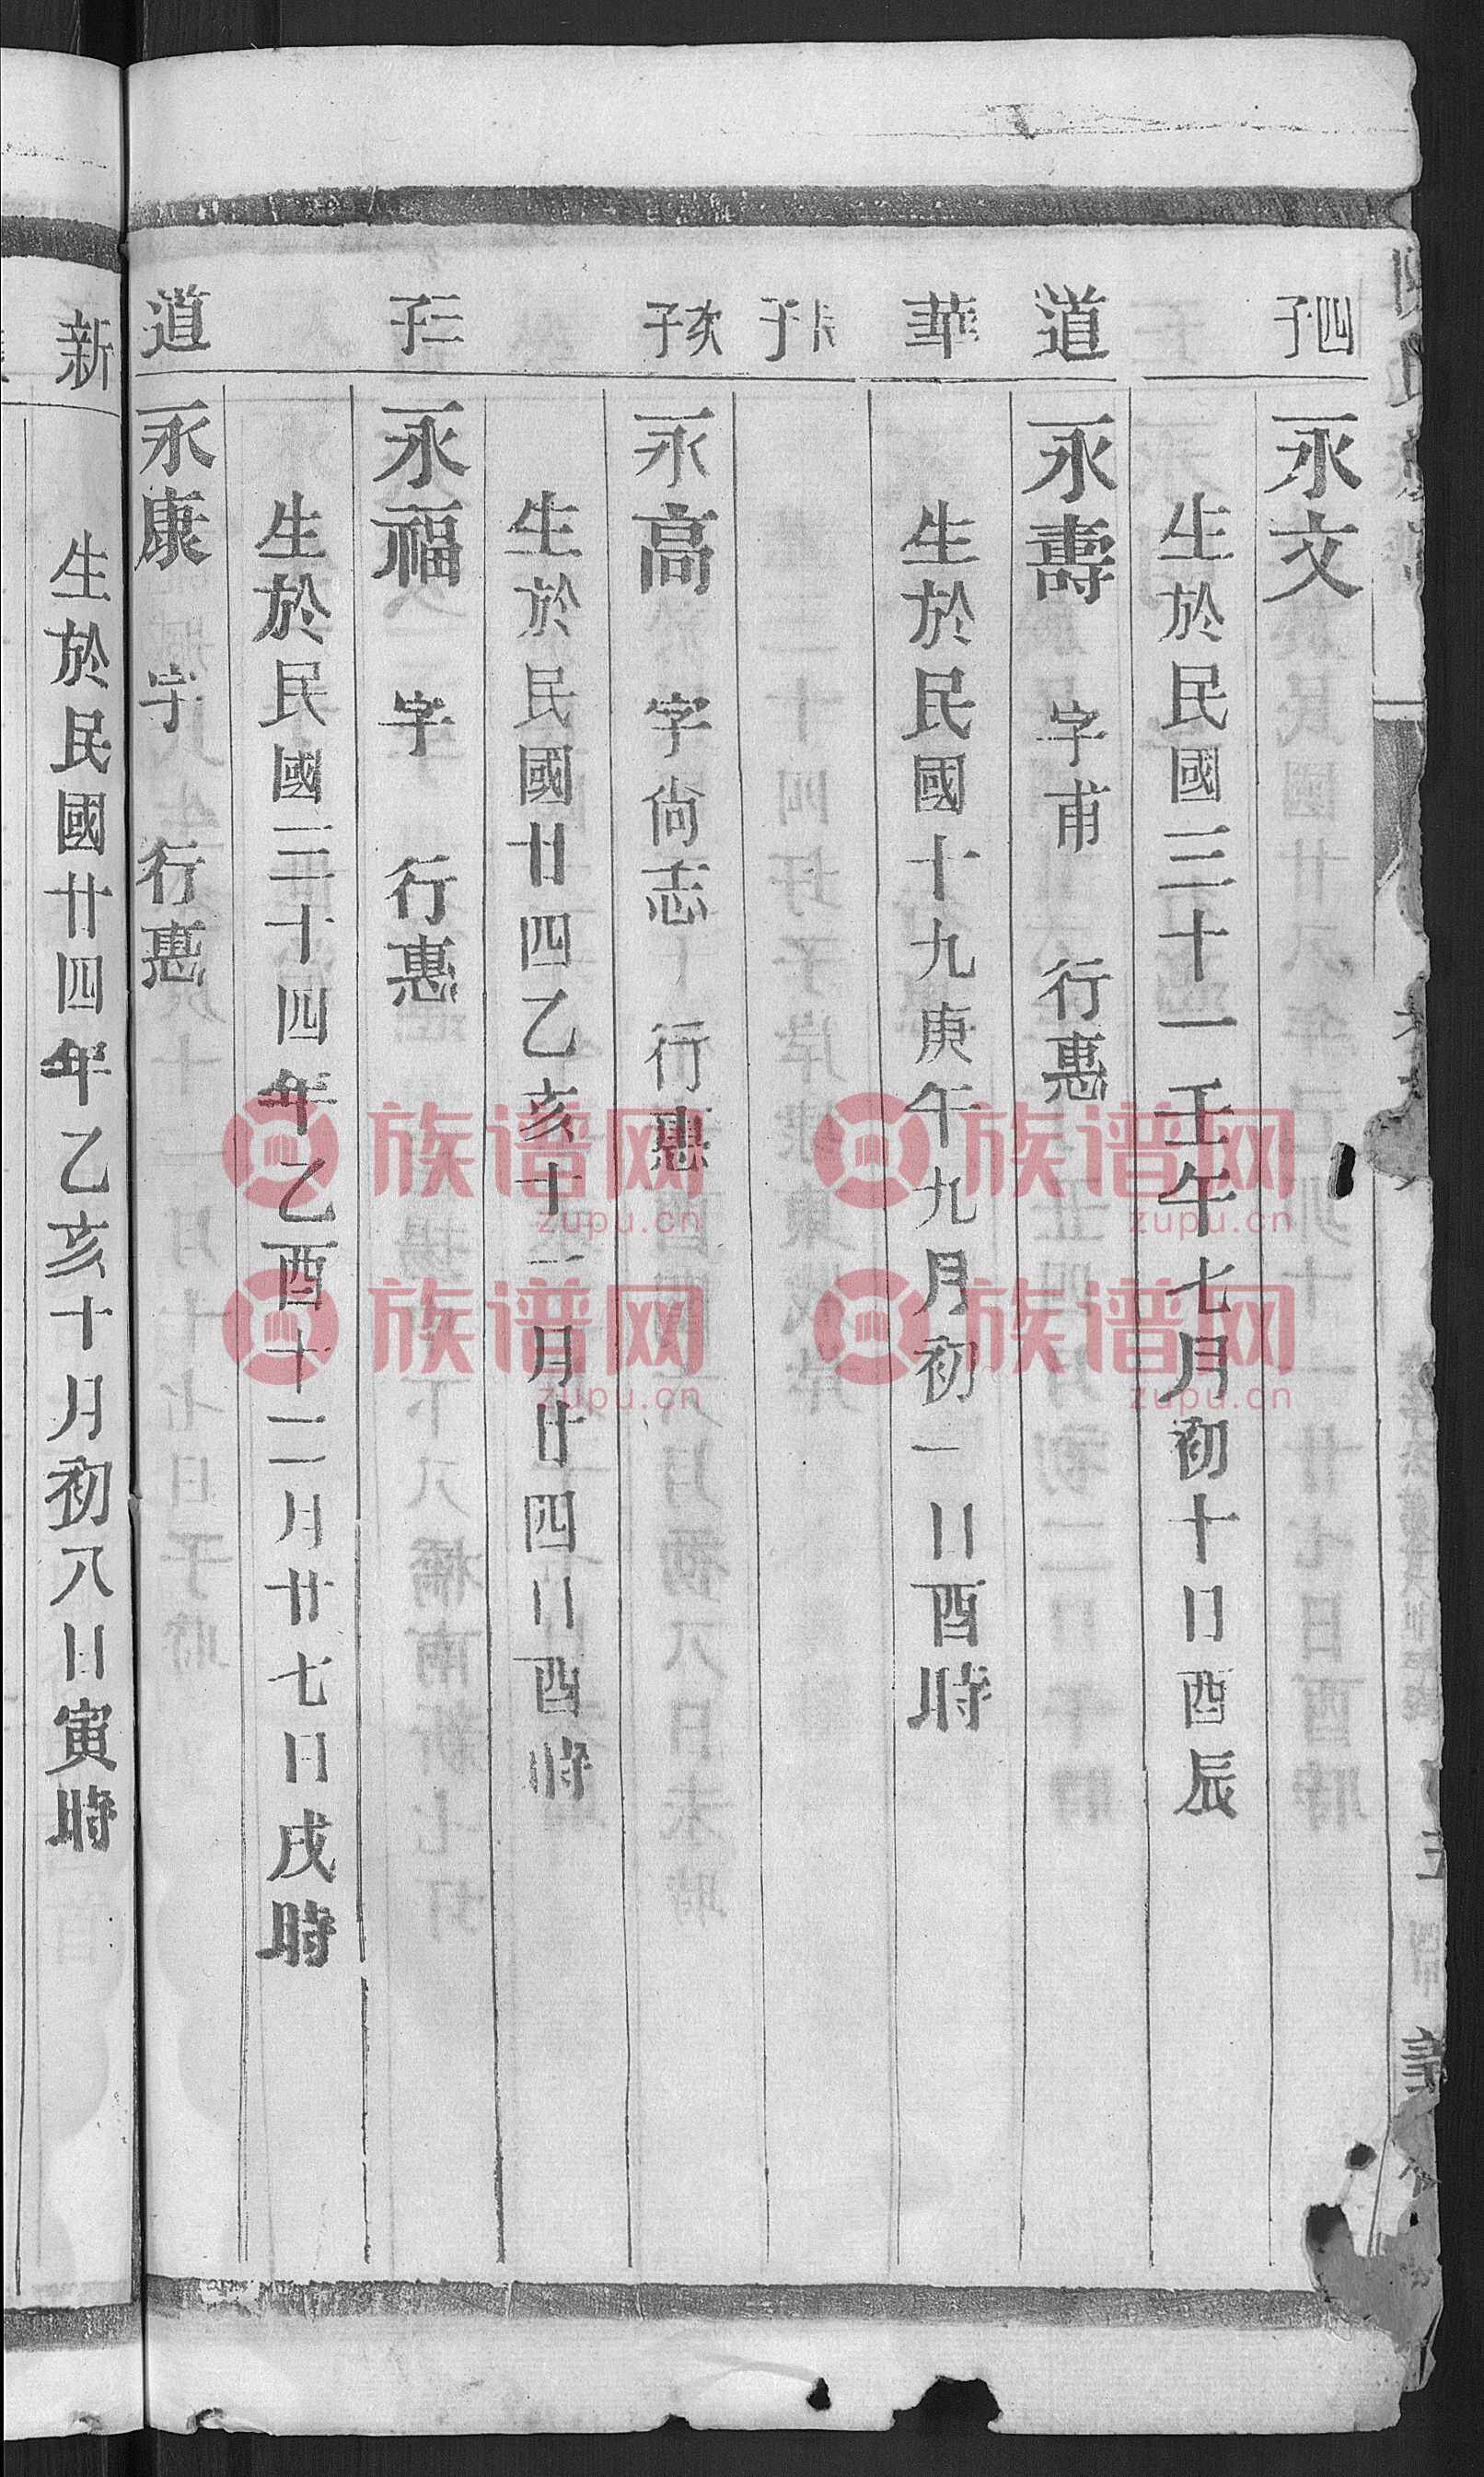 四子
永文
生於民國三十一壬午七月初十日酉辰
道
永壽 字甫 行惠
華
生於民國十九庚午九月初一日酉時
長子
次子
永高 字尙志 行惠
生於民國廿四乙亥十一月廿四日酉時
三子
永福 字 行惠
生於民國三十四年乙酉十二月廿七日戌時
道
永康 字 行惠
新
生於民國廿四年乙亥十月初八日寅時
族谱网
zupu.cn
族谱网
zupu.cn
族谱网
zupu.cn
族谱网
zupu.cn